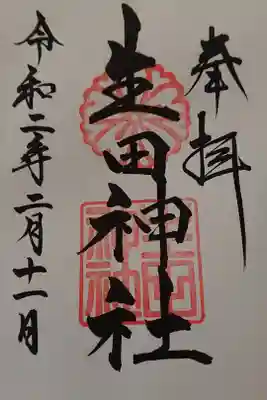 奉拝
生田神社
令和二年二月十一日
生田神社